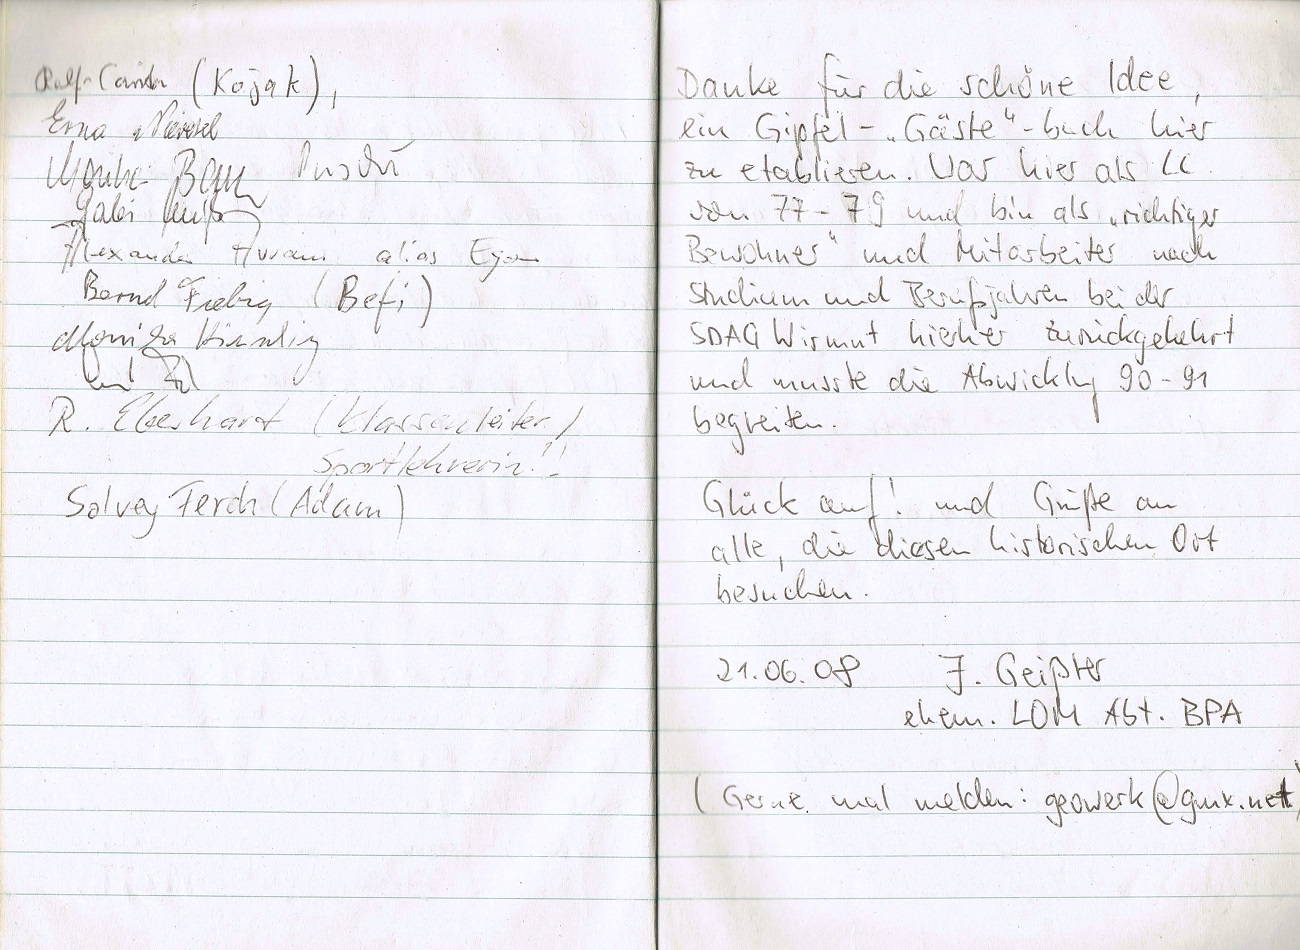 (Kojak),
Erna
Monika
Gabi
Alexander alias Egon
Bernd Fiebig (Befi)
Monika
R. Eberhart (Klassenleiter /
Sportlehrerin!!
Solvey Ferch (Adam)
Danke für die schöne Idee,
ein Gipfel-„Gäste"-buch hier
zu etablieren. War hier als LL
von 77-79 und bin als „richtiger
Bewohner" und Mitarbeiter nach
Studium und Berufsjahren bei der
SDAG Wismut hierher zurückgekehrt
und musste die Abwicklg 90-91
begleiten.
Glück auf! und Grüße an
alle, die diesen historischen Ort
besuchen.
21.06.08 J. Geißler
ehem. LOM Abt. BPA
(Gerne mal melden: geowerk@gmx.net)